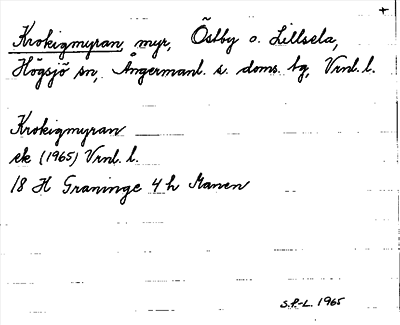 +
Krokigmyran, myr, Östby o. Lillsela,
Högsjö sn, Ångermanl. s. doms. tg, Vrnl. l.
Krokigmyran
ek (1965) Vrnl. l.
18 H Graninge 4 h Manen
S.P-L. 1965